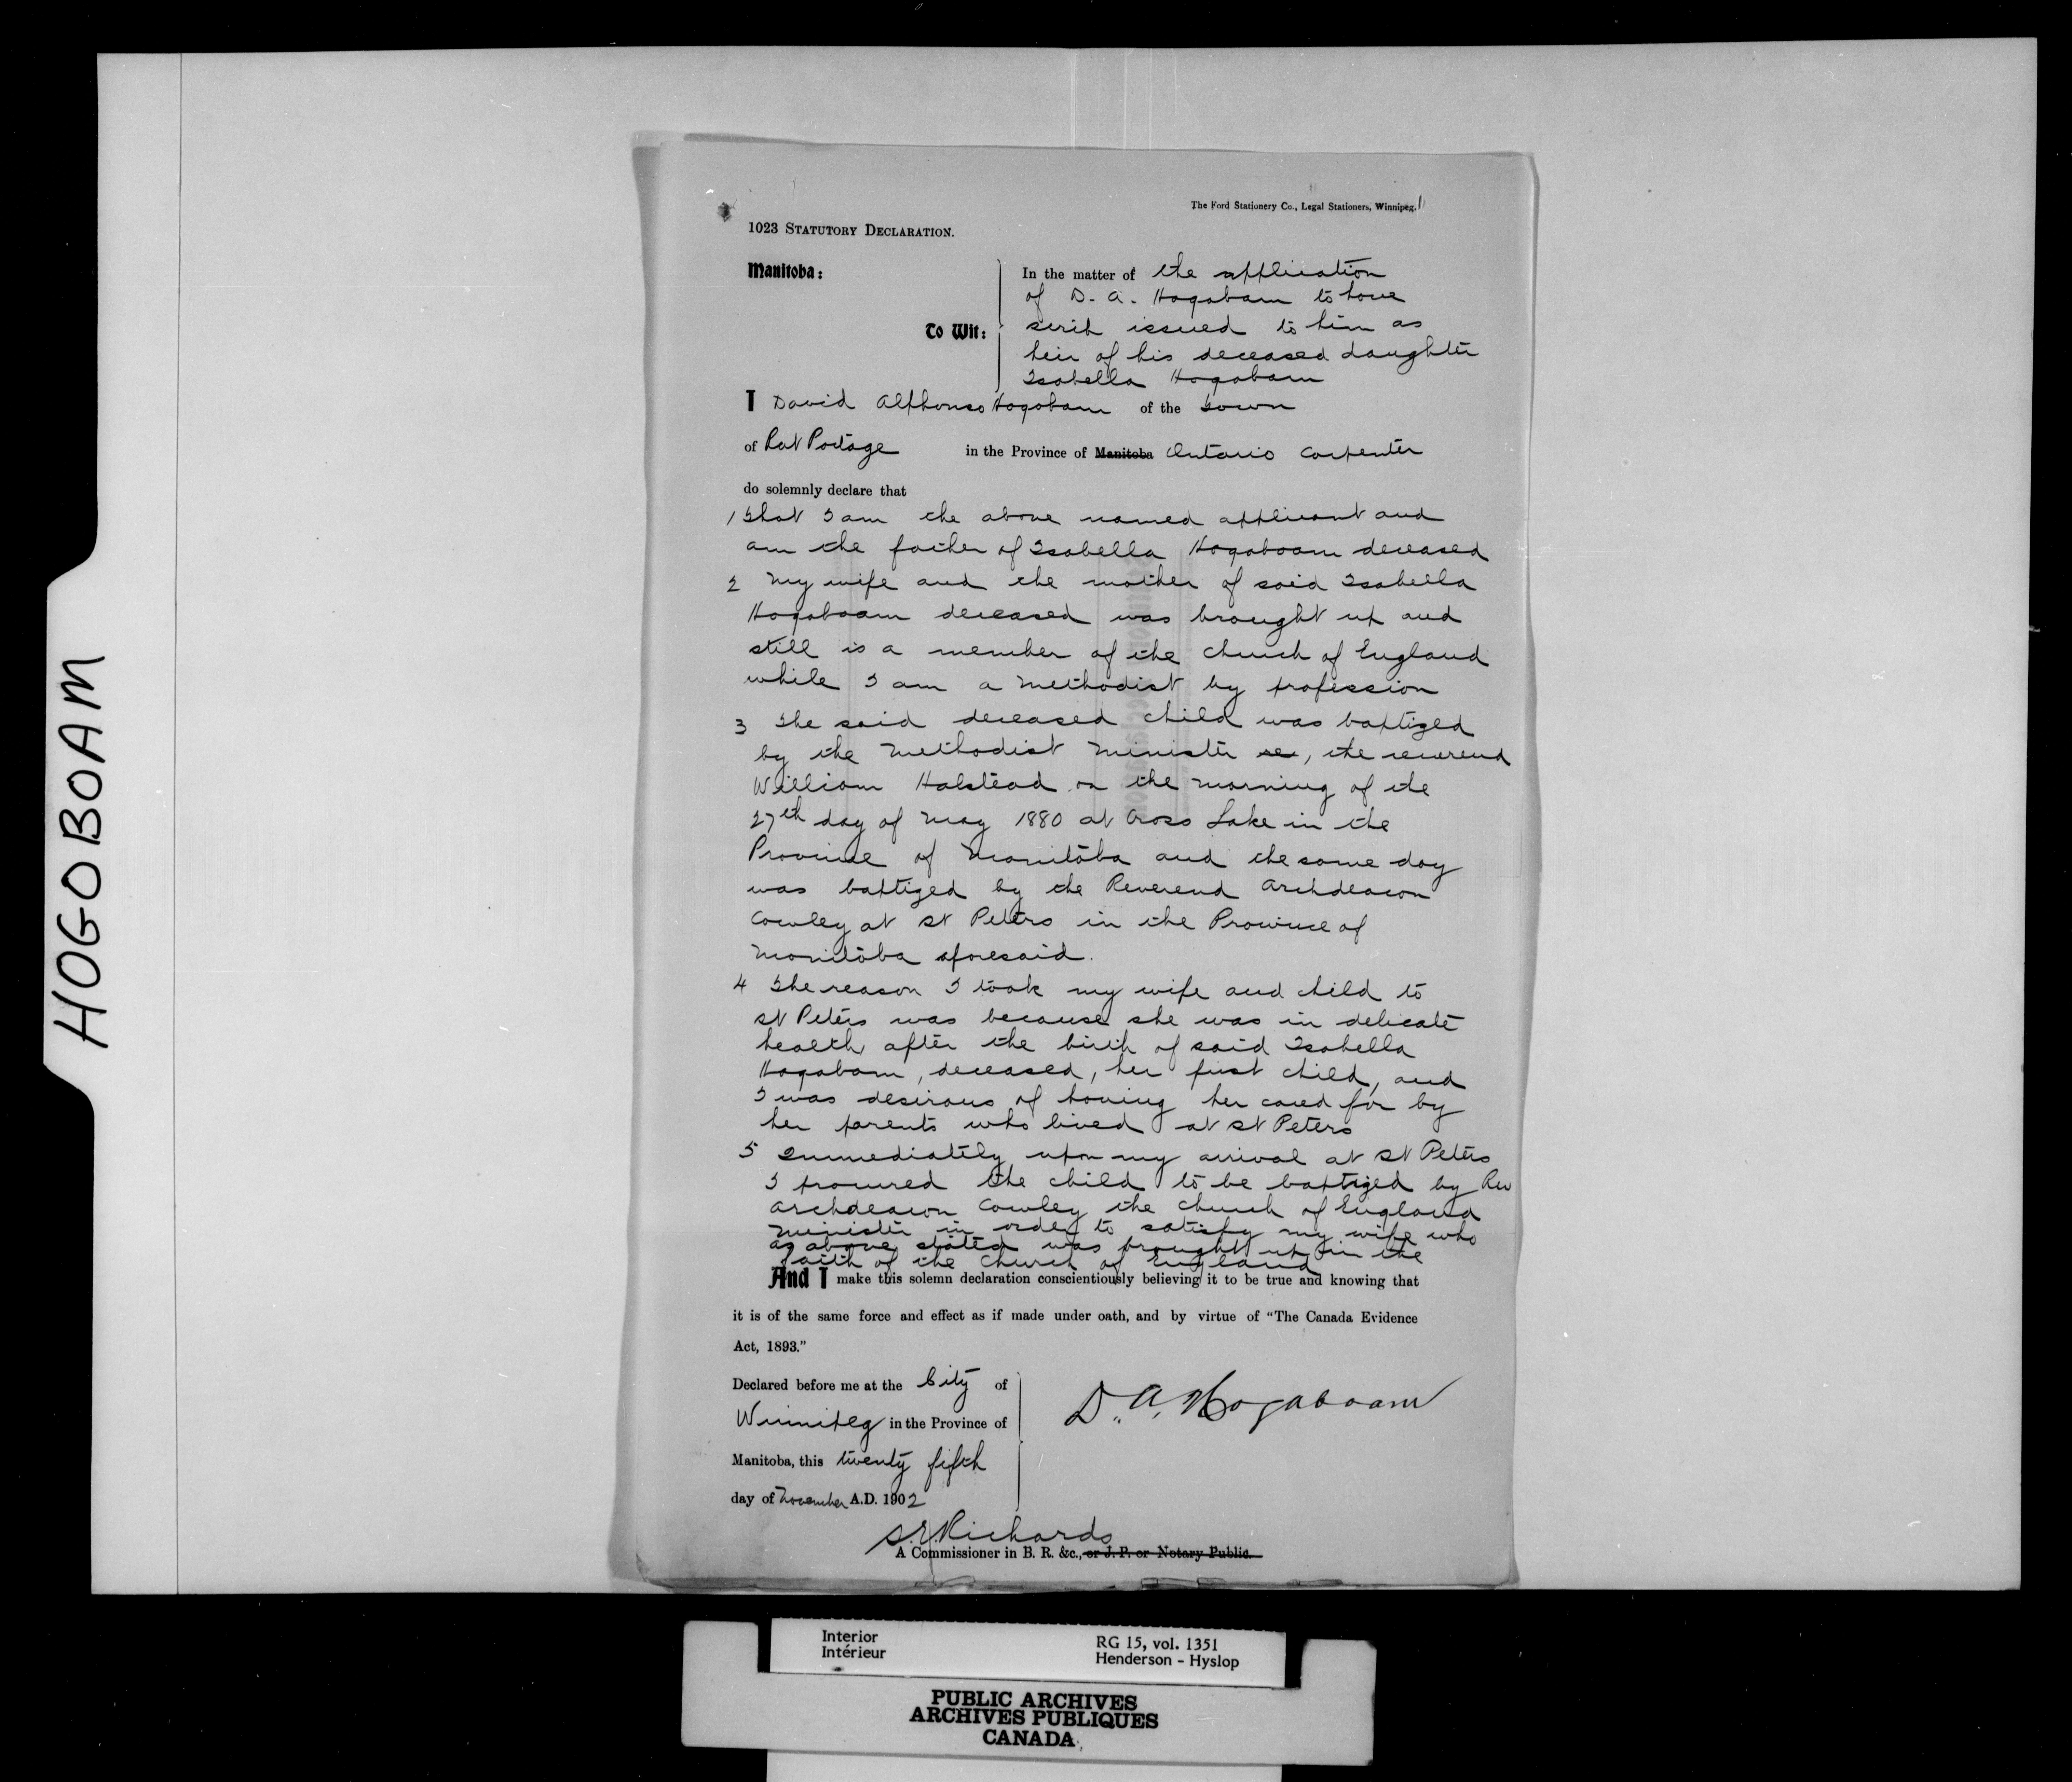 HOGOBOAM
The Ford Stationery Co., Legal Stationers, Winnipeg.
1023 STATUTORY DECLARATION.
Manitoba:
To Wit:
In the matter of the application
of D. A. Hogabam to have
scrip issued to him as
heir of his deceased daughter
Isabella Hogabam
I David Alphonso Hogabam of the Town
of Rat Portage in the Province of Manitoba Ontario Carpenter
do solemnly declare that
1 That I am the above named applicant and
am the father of Isabella Hogaboam deceased
2 My wife and the mother of said Isabella
Hogaboam deceased was brought up and
still is a member of the Church of England
while I am a Methodist by profession
3 The said deceased child was baptized
by the Methodist Minister re, the reverend
William Halstead on the morning of the
27th day of May 1880 at Cross Lake in the
Province of Manitoba and the same day
was baptized by the Reverend Archdeacon
Cowley at St Peters in the Province of
Manitoba aforesaid.
4 The reason I took my wife and child to
St Peters was because she was in delicate
health after the birth of said Isabella
Hogabam, deceased, her first child, and
I was desirous of having her cared for by
her parents who lived at St Peters
5 Immediately upon my arrival at St Peters
I procured the child to be baptized by Rev
Archdeacon Cowley the Church of England
minister in order to satisfy my wife who
as above stated was brought up in the
faith of the Church of England
And I make this solemn declaration conscientiously believing it to be true and knowing that
it is of the same force and effect as if made under oath, and by virtue of "The Canada Evidence
Act, 1893."
Declared before me at the City of
Winnipeg in the Province of
Manitoba, this twenty fifth
day of November A.D. 1902
D. A. Hogaboam
S. E. Richards
A Commissioner in B. R. &c., or J. P. or Notary Public.
Interior
Intérieur
RG 15, vol. 1351
Henderson - Hyslop
PUBLIC ARCHIVES
ARCHIVES PUBLIQUES
CANADA